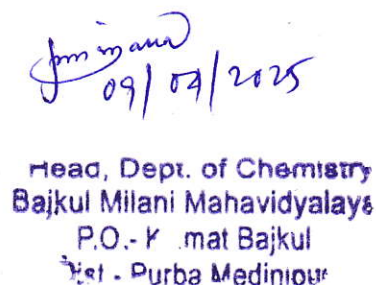 09/04/2025
Head, Dept. of Chemistry
Bajkul Milani Mahavidyalaya
P.O.- K mat Bajkul
Dist - Purba Medinipur